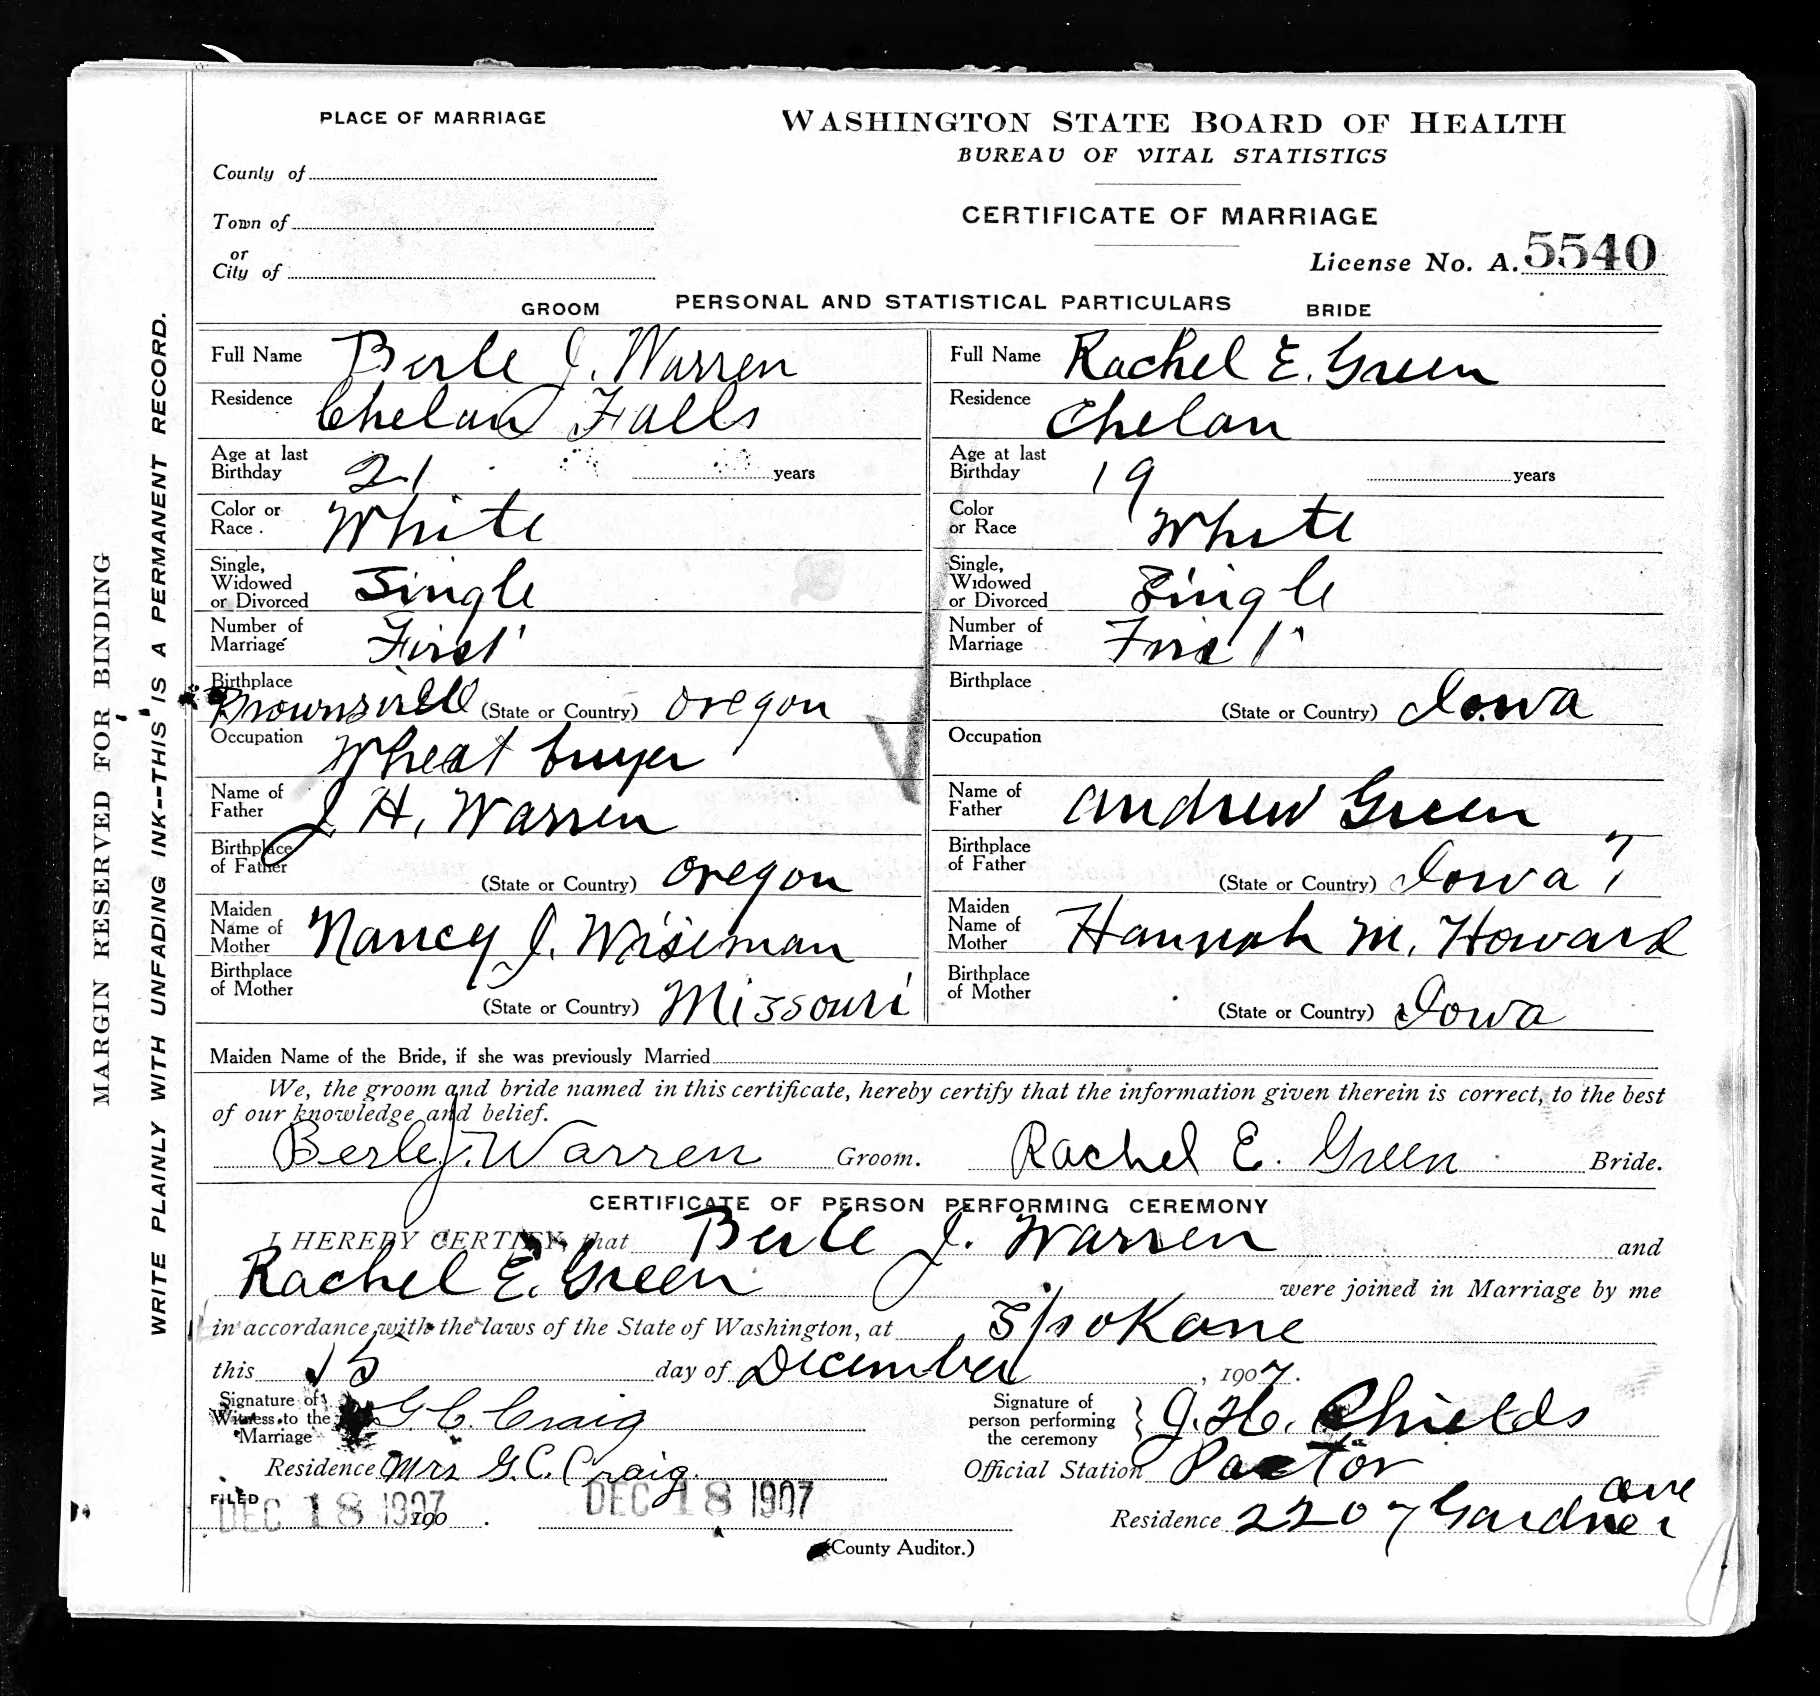 PLACE OF MARRIAGE
County of
Town of
or
City of
WASHINGTON STATE BOARD OF HEALTH
BUREAU OF VITAL STATISTICS
CERTIFICATE OF MARRIAGE
License No. A. 5540
PERSONAL AND STATISTICAL PARTICULARS
GROOM
Full Name Berle J. Warren
Residence Chelan Falls
Age at last Birthday 21 years
Color or Race. White
Single, Widowed or Divorced Single
Number of Marriage First
Birthplace Brownsville (State or Country) Oregon
Occupation Wheat buyer
Name of Father J H. Warren
Birthplace of Father (State or Country) Oregon
Maiden Name of Mother Nancy J. Wiseman
Birthplace of Mother (State or Country) Missouri
BRIDE
Full Name Rachel E. Green
Residence Chelan
Age at last Birthday 19 years
Color or Race White
Single, Widowed or Divorced Single
Number of Marriage First
Birthplace (State or Country) Iowa
Occupation
Name of Father Andrew Green
Birthplace of Father (State or Country) Iowa ?
Maiden Name of Mother Hannah M. Howard
Birthplace of Mother (State or Country) Iowa
Maiden Name of the Bride, if she was previously Married
We, the groom and bride named in this certificate, hereby certify that the information given therein is correct, to the best
of our knowledge and belief.
Berle J. Warren Groom. Rachel E. Green Bride.
CERTIFICATE OF PERSON PERFORMING CEREMONY
I HEREBY CERTIFY, that Berle J. Warren and
Rachel E. Green were joined in Marriage by me
in accordance with the laws of the State of Washington, at Spokane
this 15 day of December, 1907.
Signature of Witness to the Marriage G. C. Craig
Residence Mrs G. C. Craig.
Signature of person performing the ceremony J. H. Shields
Official Station Pastor
Residence 2207 Gardner ave
FILED DEC 18 1907 190 .
DEC 18 1907
(County Auditor.)
MARGIN RESERVED FOR BINDING
WRITE PLAINLY WITH UNFADING INK--THIS IS A PERMANENT RECORD.